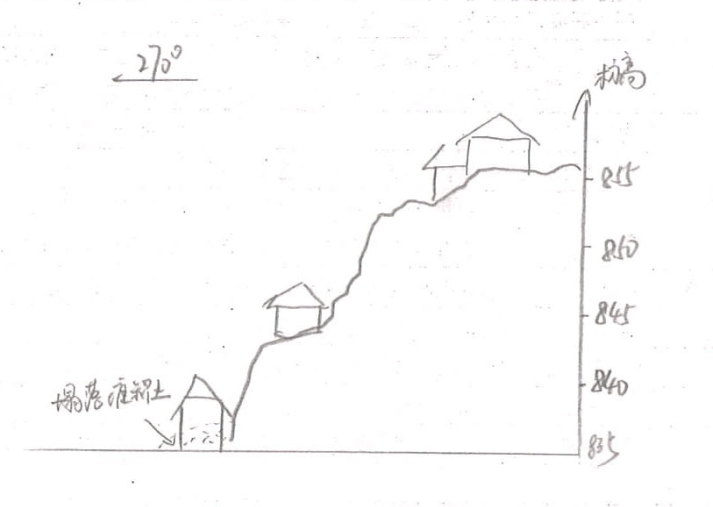 270°
标高
855
850
845
840
835
塌落堆积土